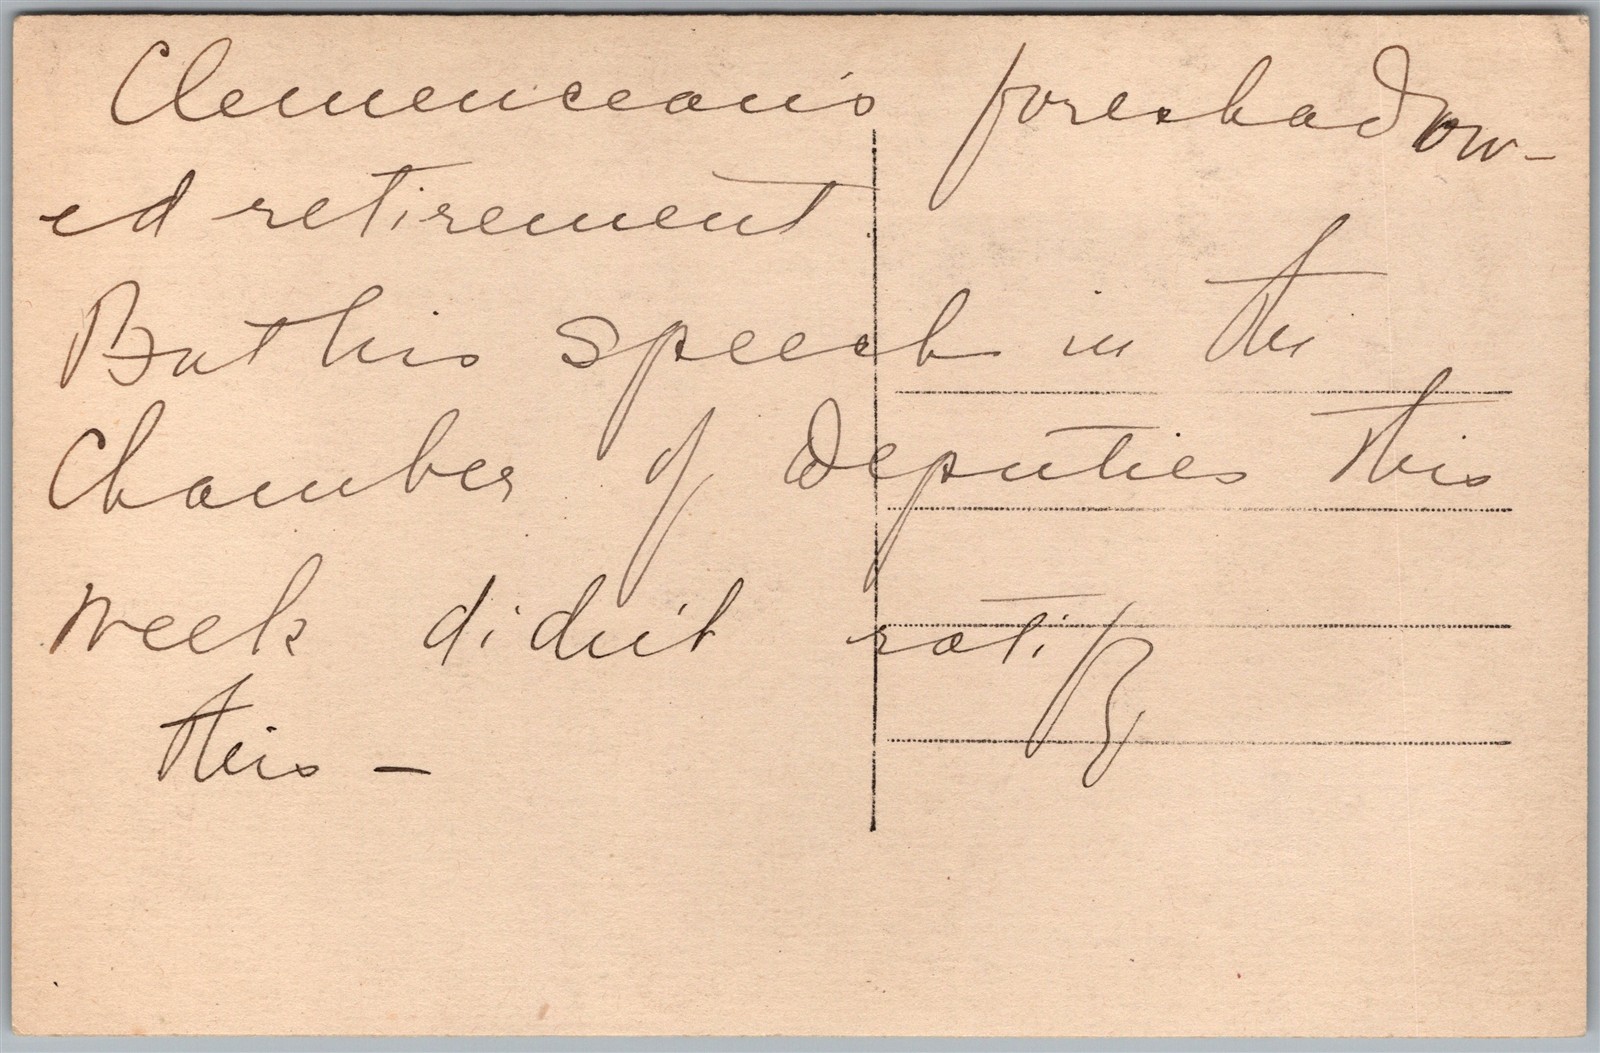 Clemenceau's foreshadow-
ed retirement.
But his speech in the
Chamber of Deputies this
week didn't ratify
this —